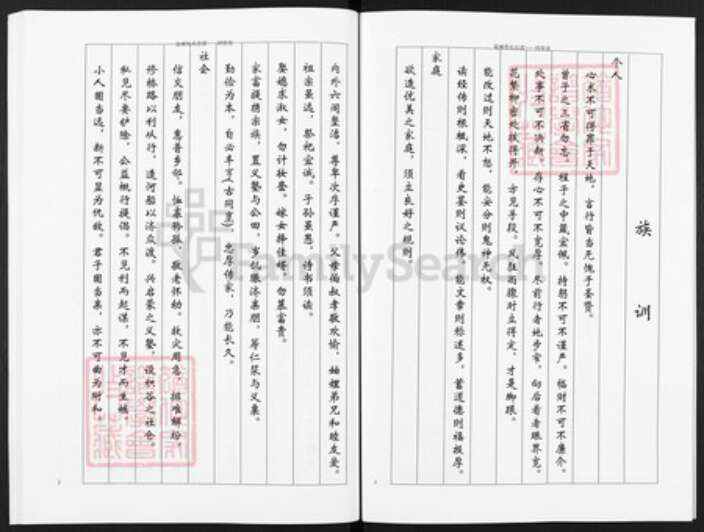 族訓
個人
心術不可得罪于天地,言行皆當无愧于圣賢。
曾子之三省勿忘,程子之中箴宏佩。持躬不可不謹严。臨財不可不廉介。
处事不可不决断,存心不可不宽厚。尽前行者地步窄,向后看者眼界宽。
花繁柳密处拨得开,方见手段。风狂雨骤时立得定,才是脚跟。
能改过则天地不怒,能安分则鬼神无权。
读经传则根柢深,看史鉴则议论伟。能文章则称述多,蓄道德则福报厚。
家庭
欲造优美之家庭,须立良好之规则。
内外六闾整洁,尊卑次序谨严。父母伯叔孝敬欢愉,妯娌弟兄和睦友爱。
祖宗虽远,祭祀宏诚。子孙虽愚,诗书须读。
娶媳求淑女,勿计妆奁。嫁女择佳婿,勿慕富贵。
家富提携宗族,置义塾与公田,岁饥赈济亲朋,筹仁浆与义粟。
勤俭为本,自必丰亨(古同烹),忠厚传家,乃能长久。
社会
信交朋友,惠普乡邻。恤寡矜孤,敬老怀幼。救灾周急,排难解纷。
修桥路以利从行,造河船以济众渡。兴启蒙之义塾,设积谷之社仓。
私见尽要铲除,公益概行提倡。不见利而起谋,不见才而生嫉。
小人固当远,断不可显为仇敌。君子固当亲,亦不可曲为附和。
FamilySearch